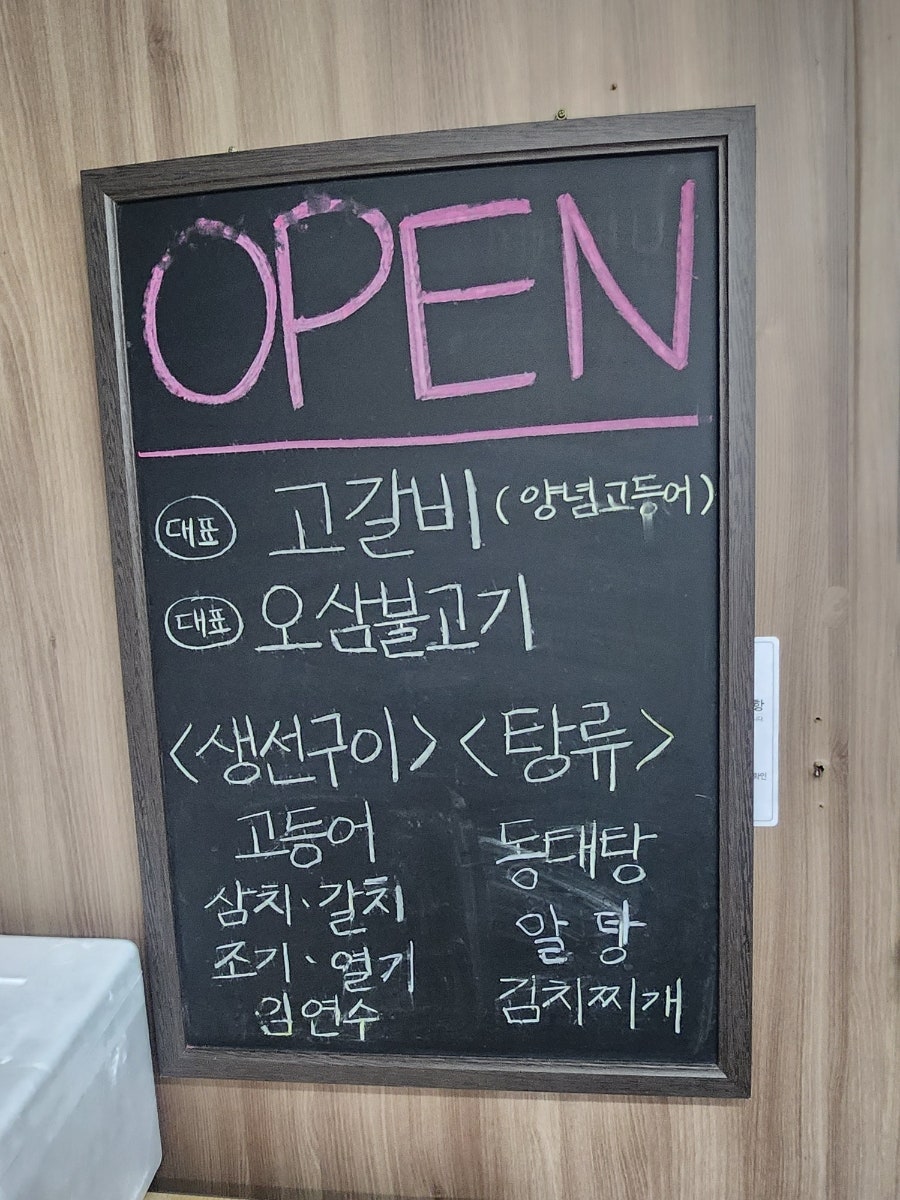 OPEN
대표 고갈비 (양념고등어)
대표 오삼불고기
<생선구이> <탕류>
고등어
삼치、갈치
조기、열기
임연수
동태탕
알탕
김치찌개
항
확인